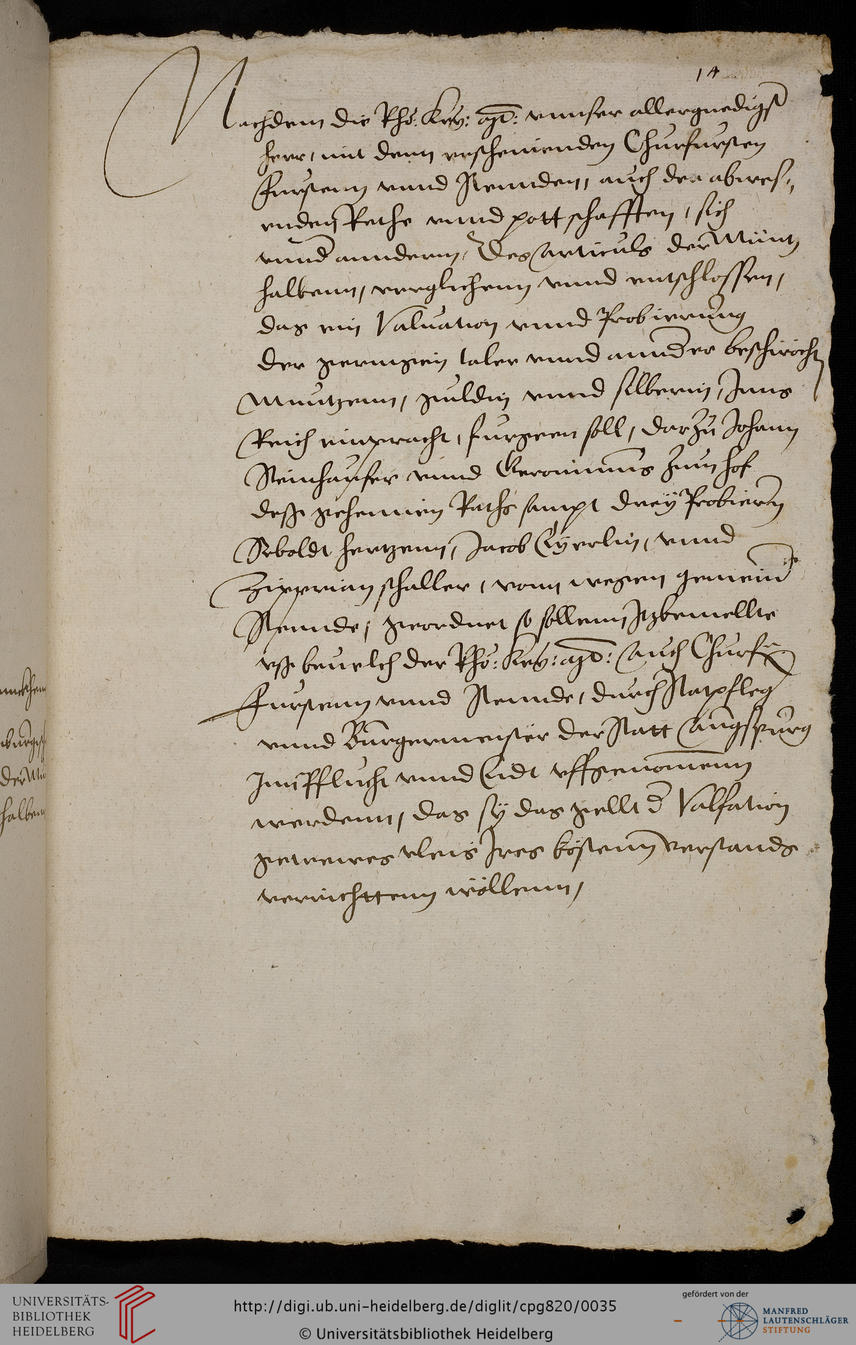 14
Nachdem die Rho: Key: Mt: vnnser allergnedigst
herr, mit denn erscheinenden Churfursten
Furstenn vnnd Stennden, auch der abwes¬
enden Rethe vnnd pottschafften, sich
vnnd anndern, Des Articuls der Müntz
halbenn, verglichenn vnnd entschlossen,
das ein Valuation vnnd Probierung
der geringen taler vnnd annder beschwocht
Muntzenn, guldin vnnd silberin, Inns
Reich einpracht, furgeen soll, darzu Johann
Steinhauser vnnd Geronimus zum hof
dess geheimen Raths sampt drey Probierern
Seboldt hertzenn, Jacob vnnd
Zipprian schaller, vonn wegen gemeinder
Stennde, geordnet so sollenn, Itzbemellte
vss beuelch der Rho: Key: Mt: Auch Churfu
Furstenn vnnd Stennde, durch Statpfleg
vnnd Burgermeister der Statt Augspurg
Inn Pflucht vnnd Eidt vffgenomenn
werdenn, das sy das gellt d Valfation
getrewes vleis Ires böstenn verstands
verrichttenn wöllenn,
UNIVERSITÄTS-
BIBLIOTHEK
HEIDELBERG
http://digi.ub.uni-heidelberg.de/diglit/cpg820/0035
© Universitätsbibliothek Heidelberg
gefördert von der
MANFRED
LAUTENSCHLÄGER
STIFTUNG